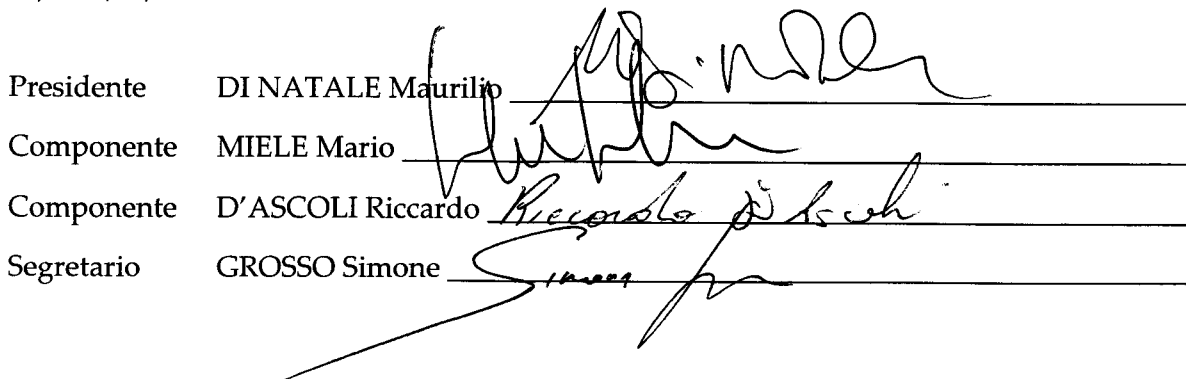 Presidente DI NATALE Maurilio
Componente MIELE Mario
Componente D'ASCOLI Riccardo Riccardo D'Ascoli
Segretario GROSSO Simone Simone